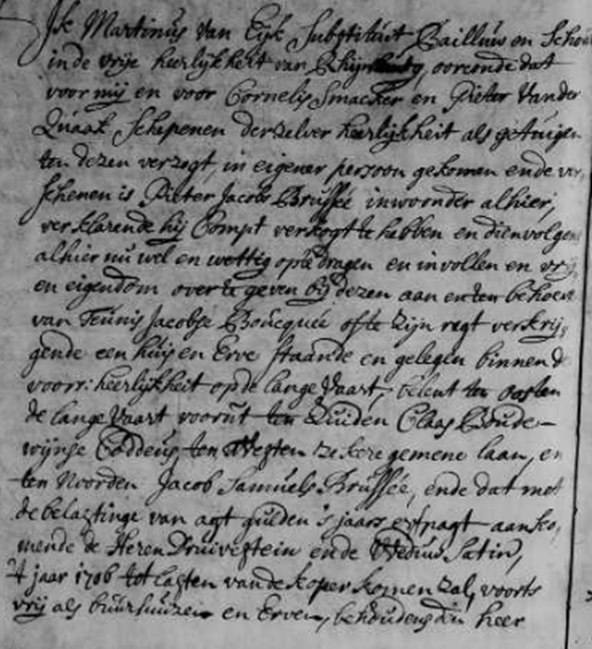 Ik Martinús van Eijk Substitúút Bailluw en Schou
inde vrije heerlijkheit van, oorconde dat
voor mij en voor Cornelis Smacker en Pieter vander
Quaak Schepenen derzelver heerlijkheit als getuigen
ten dezen verzogt, in eigener persoon gekomen ende ver
schenen is Pieter Jacobs Brússee inwoonder alhier,
verklarende hij Compt verkogt te hebben en dienvolgen
alhier nu wel en wettig opte dragen en in vollen en vrij
en eigendom over te geven bij dezen aan en ten behoeve
van Teúnis Jacobse Boucquee ofte zijn regt verkrij,
gende een húijs en Erve staande en gelegen binnen de
voorr: heerlijkheit op de lange Vaart, belent ten oosten
de lange Vaart voorút ten Zuiden Claas Boude-
wijnse Coddeús, ten Westen zekere gemene laan, en
ten Noorden Jacob Samúels Brússee, ende dat met
de belastinge van agt gulden 's jaars erfpagt aanko,
mende de Heren Druivestein ende Weduw Satin,
't jaar 1706 tot lasten vande koper komen zal, voorts
vrij als búúrhúizen en Erven, behoudens den heer